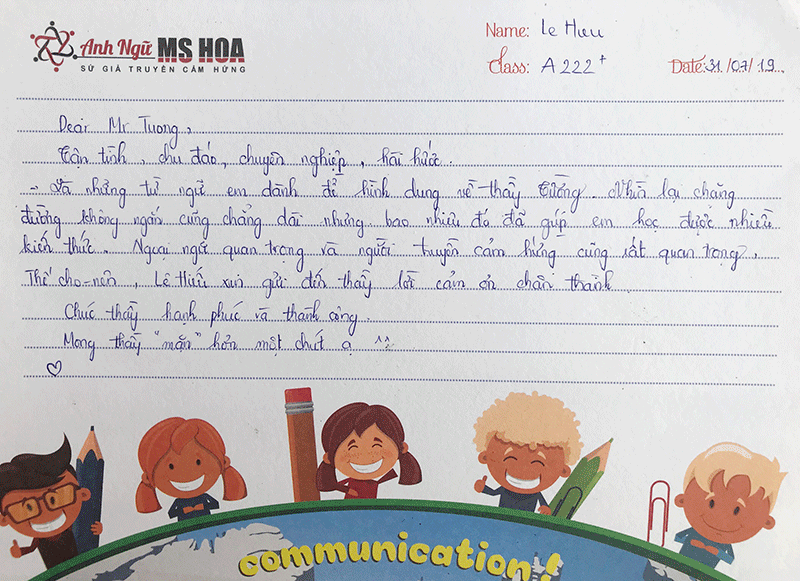 Anh Ngữ MS HOA
SỨ GIẢ TRUYỀN CẢM HỨNG
Name: Le Hieu
Class: A222+
Date: 31/07/19
Dear Mr Tuong,
Tận tình, chu đáo, chuyên nghiệp, hài hước.
-> Là những từ ngữ em dành để hình dung về thầy Tường. Nhìn lại chặng
đường không ngắn cũng chẳng dài nhưng bao nhiêu đó đã giúp em học được nhiều
kiến thức. Ngoại ngữ quan trọng và người truyền cảm hứng cũng rất quan trọng.
Thế cho nên, Lê Hiếu xin gửi đến thầy lời cảm ơn chân thành.
Chúc thầy hạnh phúc và thành công.
Mong thầy "mặn" hơn một chút ạ ^^
communication!